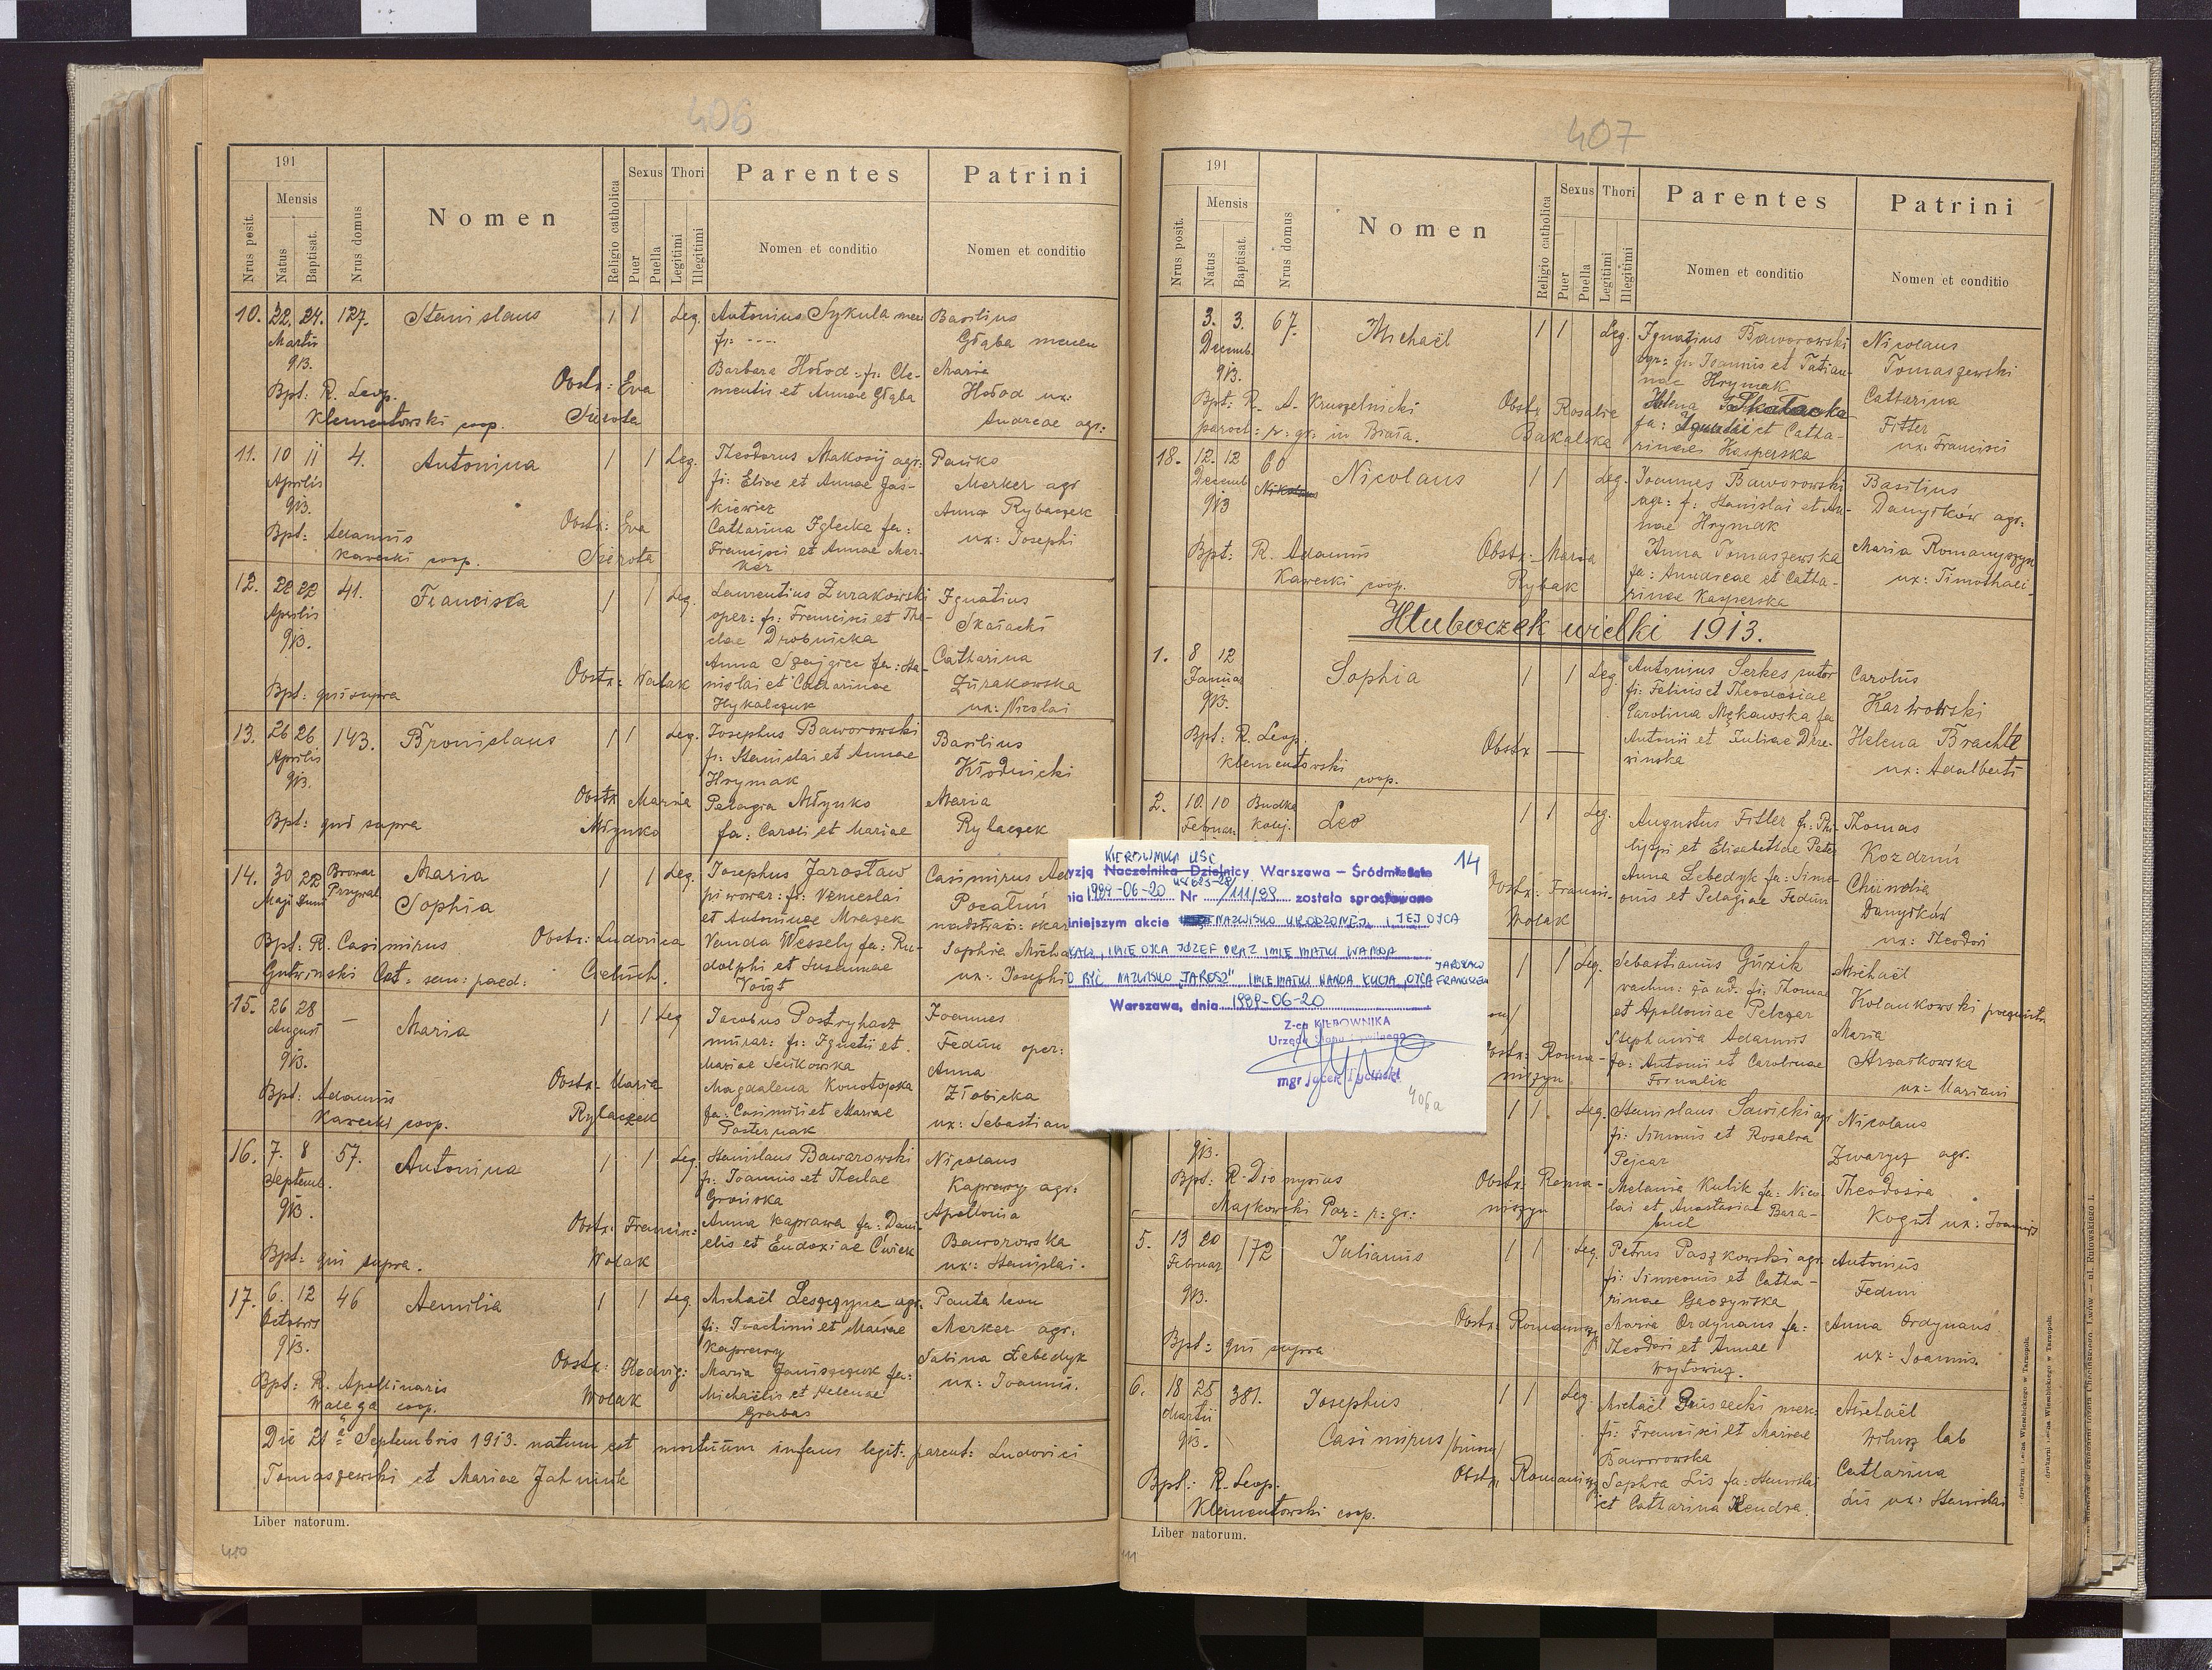 406
191
Nrus posit.
Mensis
Natus
Baptisat.
Nrus domus
Nomen
Religio catholica
Sexus
Puer
Puella
Thori
Legitimi
Illegitimi
Parentes
Nomen et conditio
Patrini
Nomen et conditio
10. 22. 24. 127. Stanislaus 1 1 Leg.
Martii
913.
Bpt: R. Leop.
Klementowski coop.
Obstr: Eva
Sierota
Antonius Sykula
fi: ----
Barbara Hołod: fi: Cle-
mentis et Annae Głąba
Basilius
Głąba
Maria
Hołod ux:
Andreae agr:
11. 10 11 4. Antonina 1 1 Leg.
Aprilis
913.
Bpt: Adamus
Kawecki coop.
Obstr: Eva
Sierota
Theodorus Makosij agr:
fi: Eliae et Annae Jaś-
kiewicz
Catharina Iglecka fa:
Francisci et Annae Mer-
ker
Pańko
Merker agr
Anna Rybaczek
ux: Josephi
12. 22 22 41. Francisca 1 1 Leg.
Aprilis
913.
Bpt: qui supra
Obstr: Wolak
Laurentius Żurakowski
oper: fi: Francisci et The-
clae Drobnicka
Anna Szajgier fa: Sta-
nislai et Catharinae
Hykalczuk
Ignatius
Skałacki
Catharina
Żurakowska
ux: Nicolai
13. 26 26 143. Bronislaus 1 1 Leg.
Aprilis
913.
Bpt: qui supra
Obstr: Maria
Młynko
Josephus Baworowski
fi: Stanislai et Annae
Hrymak
Pelagia Młynko
fa: Caroli et Mariae
Basilius
Kłodnicki
Maria
Rylaczek
14. 30 22 Browar Maria 1 1 Leg.
Maji Junii
Sophia
Bpt: R. Casimirus
Gutwinski Cat: sem: paed:
Obstr: Ludovica
Cieluch.
Josephus Jarosław
piwowar: fi: Venceslai
et Antoninae Mraczek
Vanda Wessely fa: Ru-
dolphi et Susannae
Voigt
Casimirus
Pocałuń
Sophia
ux: Josephi
15. 26 28 — Maria 1 1 Leg
August
913.
Bpt: Adamus
Kawecki coop.
Obstr: Maria
Rylaczek
Jacobus Postryhacz
murar: fi: Ignatii et
Mariae Senkowska
Magdalena Konotopska
fa: Casimiri et Mariae
Pasternak
Joannes
Fedun oper:
Anna
Złobicka
ux: Sebastian
16. 7. 8 57. Antonina 1 1 Leg.
Septemb.
913.
Bpt: qui supra.
Obstr: Francisc:
Wolak
Stanislaus Baworowski
fi: Joannis et Theclae
Anna Kaprawa fa: Dani-
elis et Eudoxiae Ćwiek
Nicolaus
Kaprawy agr:
Apollonia
Baworowska
ux: Stanislai.
17. 6. 12 46 Aemilia 1 1 Leg.
Octobris
913.
Bpt: R. Apollinaris
Wałęga coop.
Obstr: Hedvig:
Wolak
Michaël Leszczyna agr.
fi: Joachimi et Mariae
Kaprawy
Maria Janiszczuk fa:
Michaelis et Helenae
Grabas
Pantaleon
Merker agr.
Sabina Łebedyk
ux: Joannis.
Die 21a Septembris 1913. natum est mortuum infans legit: parent: Ludovici
Tomaszewski et Mariae
Liber natorum.
410
407
191
Nrus posit.
Mensis
Natus
Baptisat.
Nrus domus
Nomen
Religio catholica
Sexus
Puer
Puella
Thori
Legitimi
Illegitimi
Parentes
Nomen et conditio
Patrini
Nomen et conditio
3. 3. 67. Michaël 1 1 Leg.
Decemb.
913.
Bpt: R. A. Kruszelnicki
paroch: r: gr: in Biała.
Obstr Rosalia
Bakalska
Ignatius Baworowski
agr: fi: Joannis et Tatian-
nae Hrymak
Helena Skałacka
fa: Ignatii et Catha-
rinae Kasperska
Nicolaus
Tomaszewski
Catharina
Fitter
ux: Francisci
18. 12. 12 60 Nicolaus 1 1 Leg.
Decemb
913
Nikolaus
Bpt: R. Adamus
Kawecki coop.
Obstr: Maria
Rybak
Joannes Baworowski
agr: f: Stanislai et An-
nae Hrymak
Anna Tomaszewska
fa: Andreae et Catha-
rinae Kasperska
Basilius
Danyłków agr:
Maria Romanyszyn
ux: Timothaei
Hłuboczek wielki 1913.
1. 8 12 Sophia 1 1 Leg
Januar
913.
Bpt: R. Leop.
Klementowski
coop.
Obstr —
Antonius Serkes sutor
fi: Felicis et Theodosiae
Carolina Mękawska fa
Antonii et Juliae Drze-
winska
Carolus
Karwowski
Helena Brachtl
ux: Adalberti
2. 10. 10 Budka Leo 1 1 Leg.
Februar. kolej.
Obstr: Francis.
Wolak
Augustus Fitter fi: Phi-
lippi et Elisabethae Peter
Anna Lebedyk fa: Sime-
onis et Pelagiae Fedun
Thomas
Kozdruń
Danyłków
ux: Theodori
1 1 Leg.
Obstr: Roma-
niszyn
Sebastianus Guzik
fi: Thomae
et Apolloniae Pelczar
Stephania Adamus
fa: Antonii et Carolinae
Fornalik
Michaël
Kolankowski
Maria
ux: Mariani
1 1 Leg.
913.
Bpt: R. Dionysius
Majkowski Par: r: gr:
Obstr: Roma-
niszyn
Stanislaus Sawicki agr
fi: Simonis et Rosalia
Pejcar
Melania Kulik fa: Nico-
lai et Anastasiae Bara-
Nicolaus
Zwarycz agr.
Theodosia
Kogut ux: Joannis
5. 13 20 172 Julianus 1 1 Leg.
Februar
913.
Bpt: qui supra
Obstr: Romaniszyn
Petrus Paszkowski agr.
fi: Simeonis et Catha-
rinae
Maria Ordynans fa:
Theodori et Annae
Wojtowicz.
Antonius
Fedun
Anna Ordynans
ux: Joannis.
6. 18 25 381. Josephus 1 1 Leg.
Martii
913.
Casimirus
Bpt: R. Leop.
Klementowski coop.
Obstr Romanisz
Michaël
fi: Francisci et Mariae
Baworowska
Sophia Lis fa: Stanislai
et Catharina Kendra.
Michaël
Wilusz lab
Catharina
Lis ux: Stanislai
Liber natorum.
14
KIEROWNIKA USC
yzją Naczelnika Dzielnicy Warszawa – Śródmieście
nia 1989-06-20 Nr /111/89 została sprostowane
niniejszym akcie NAZWISKO URODZONEJ, I JEJ OJCA
, IMIĘ OJCA JÓZEF ORAZ IMIĘ MATKI WANDA
JAROSŁAW
O BYĆ NAZWISKO "JAROSZ" IMIĘ MATKI WANDA ŁUCJA, OJCA FRANCISZEK
Warszawa, dnia 1989-06-20
Z-ca KIEROWNIKA
Urzędu Stanu Cywilnego
mgr Jacek Tyciński
406a